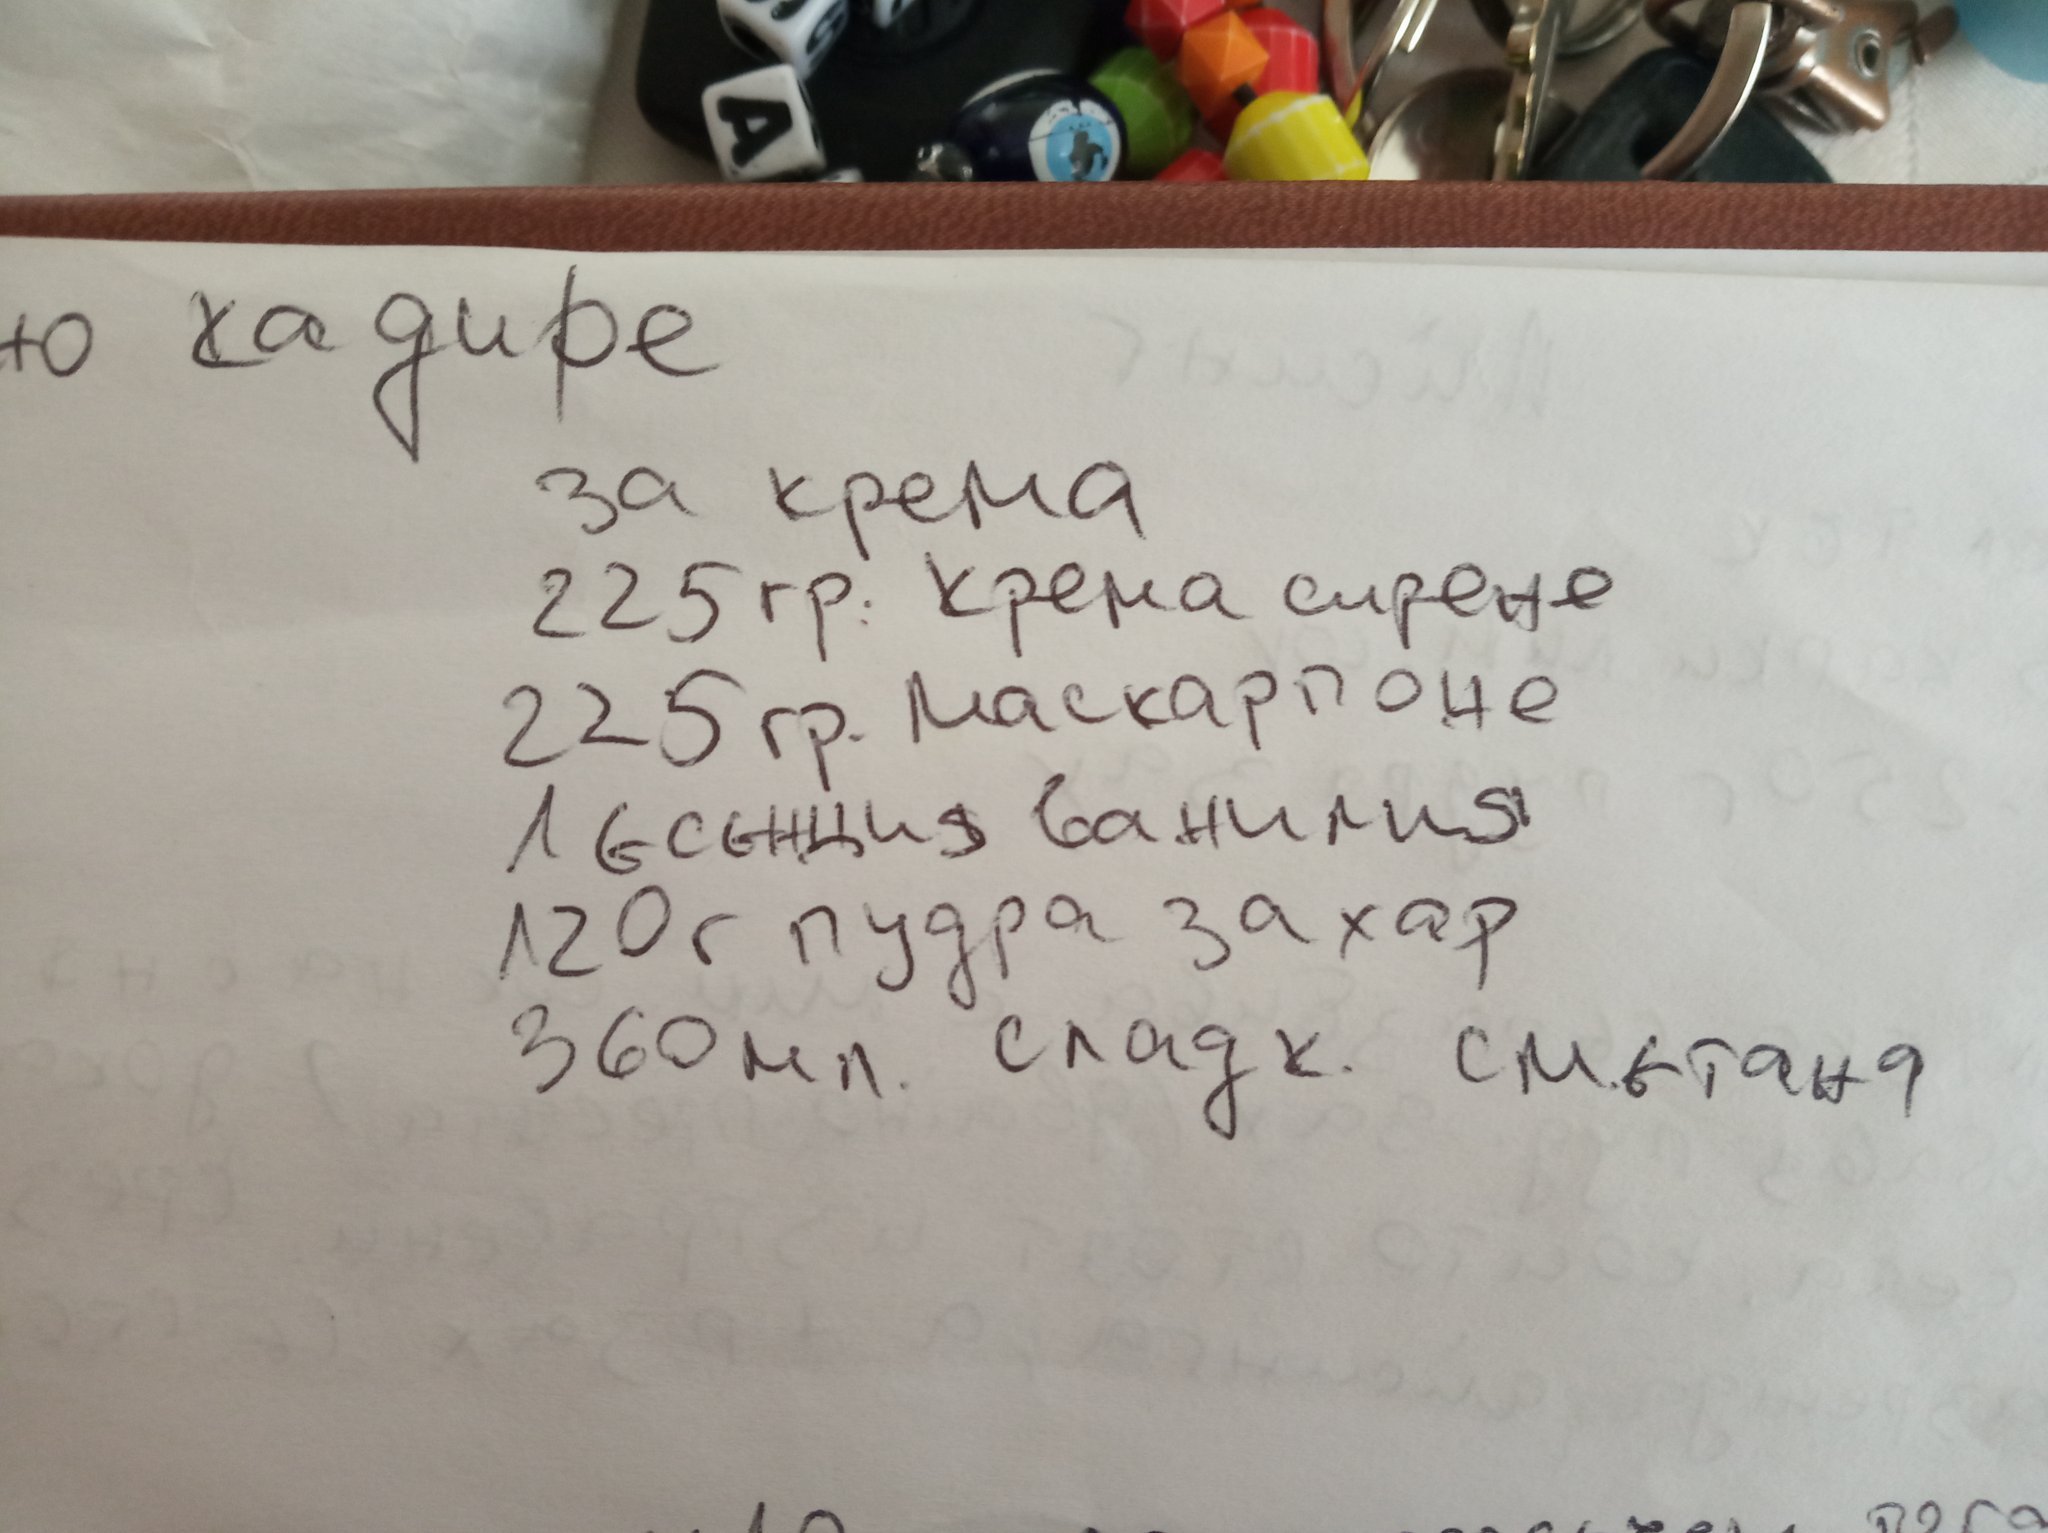 A
кадире
за крема
225 гр. крема сирене
225 гр. маскарпоне
1 есенция ванилия
120 г пудра захар
360 мл. сладк. сметана